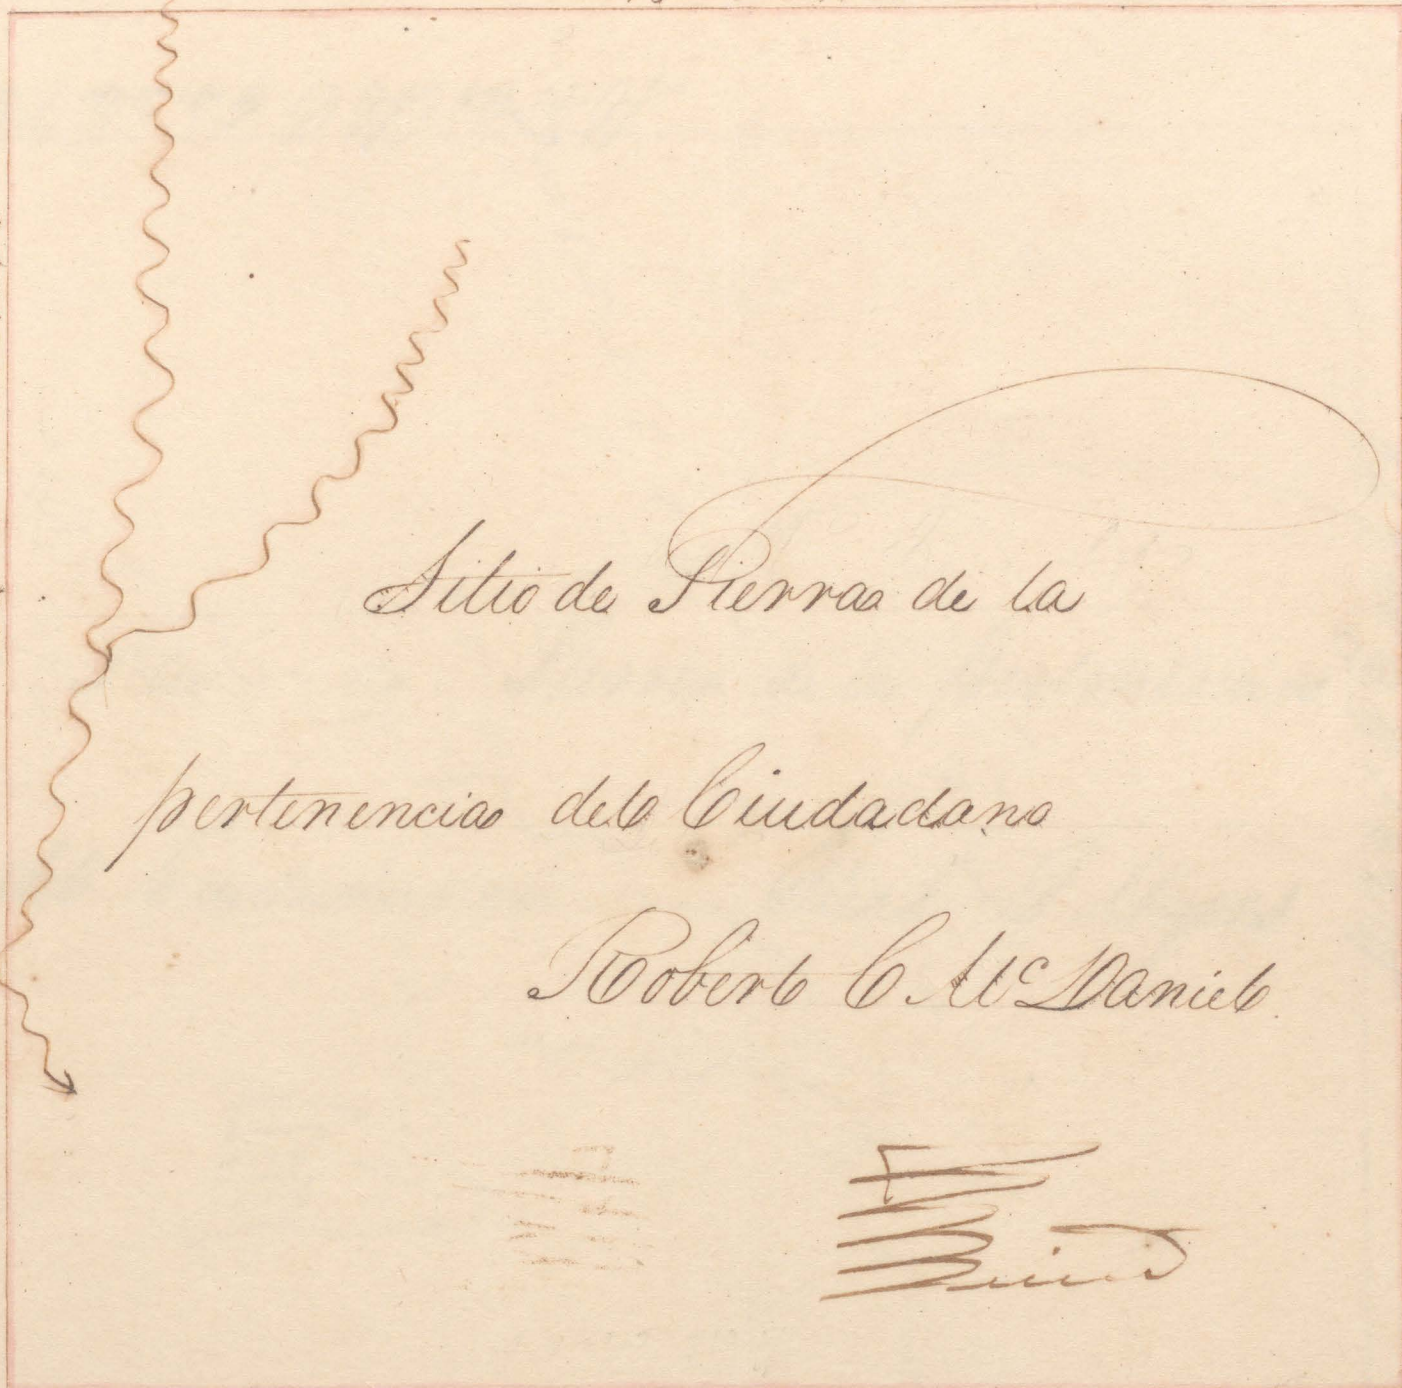 Sitio de Tierras de la
pertenencia del Ciudadano
Robert C McDaniel